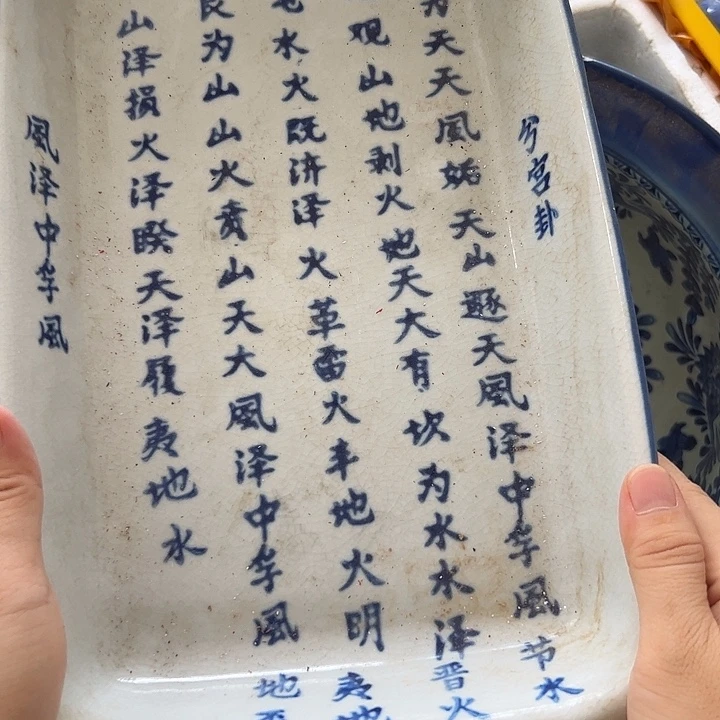 兮宫卦
为天天風姤天山遯天風泽中孚風节水
观山地剥火地天大有坎为水水泽晋火
水火既济泽火革雷火丰地火明夷地
艮为山山火贲山天大風泽中孚風地
山泽损火泽睽天泽履夷地水
風泽中孚風